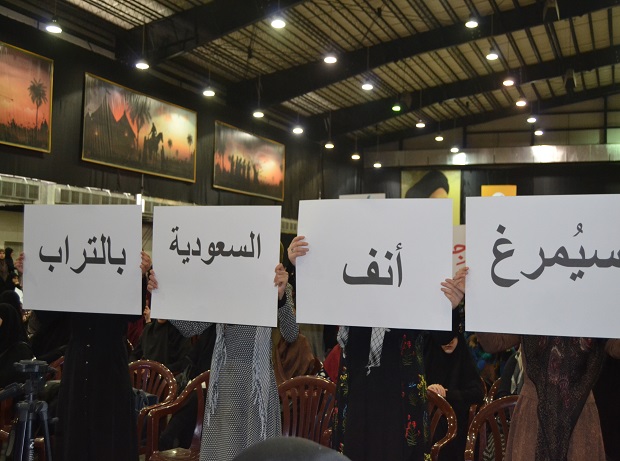 سيُمرغ أنف السعودية بالتراب